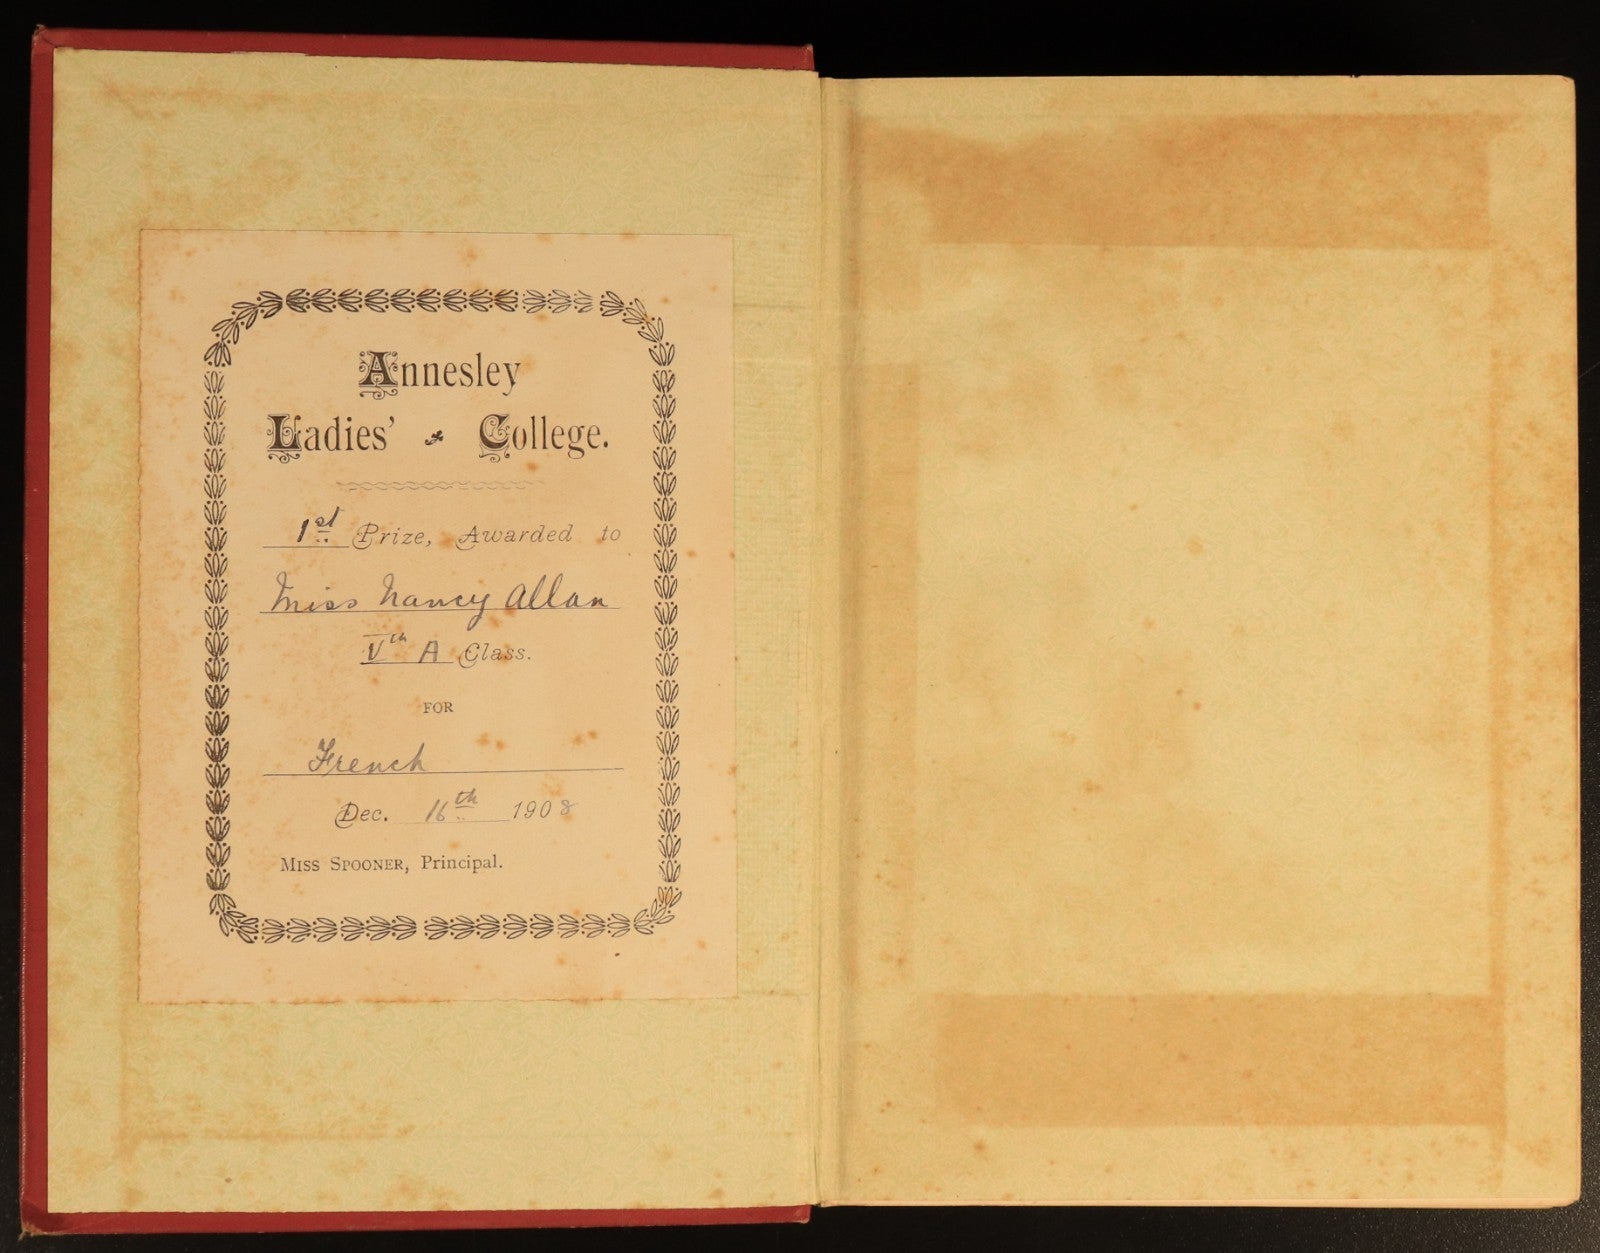 Annesley
Ladies' College.
1st Prize, Awarded to
Miss Nancy Allan
Vth A Class.
FOR
French
Dec. 16th 1908
MISS SPOONER, Principal.